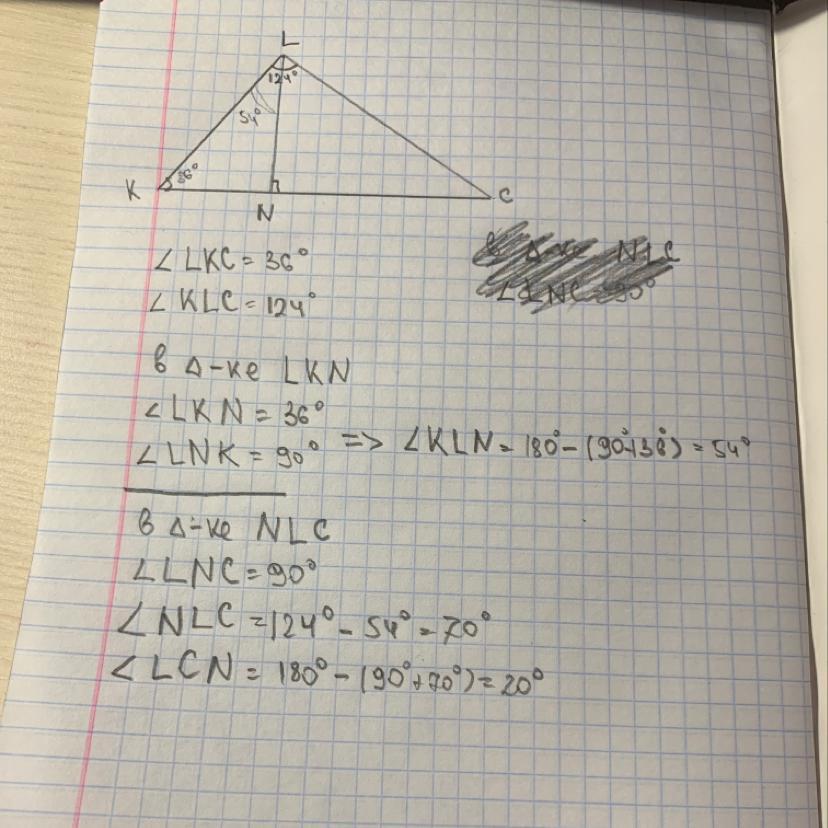 L
124°
54°
36°
K
N
C
∠LKC = 36°
∠KLC = 124°
NLC
в Δ-ке LKN
∠LKN = 36°
∠LNK = 90° => ∠KLN = 180° - (90°+36°) = 54°
в Δ-ке NLC
∠LNC = 90°
∠NLC = 124° - 54° = 70°
∠LCN = 180° - (90°+70°) = 20°